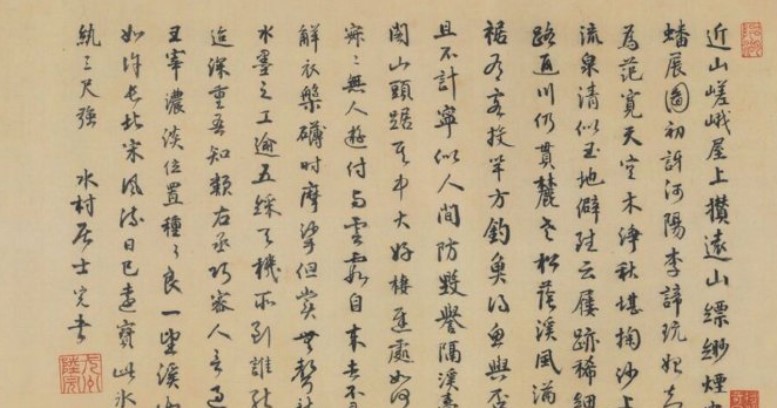 近山嵯峨屋上攢遠山縹緲煙
蟠展圖初訝河陽李諦玩知
為范寬天空木淨秋堪掬沙上
流泉清似玉地僻駐云屐跡稀細
路通川仍貫麓老松蔭溪風滿
裾有客投竿方釣魚得魚與否
且不計寧似人間防毀譽隔溪
關山頭踞其中大好棲遲處如何
寂寂無人游付与雲霞自來去不
解衣槃礴時摩挲但賞無聲
水墨之工逾五綵天機所到誰
深重吾知類右丞巧密人言過
王宰濃淡位置種種良一望溪
如許長北宋風流日已遠寶此冰
紈三尺強 水村居士完書
陸完